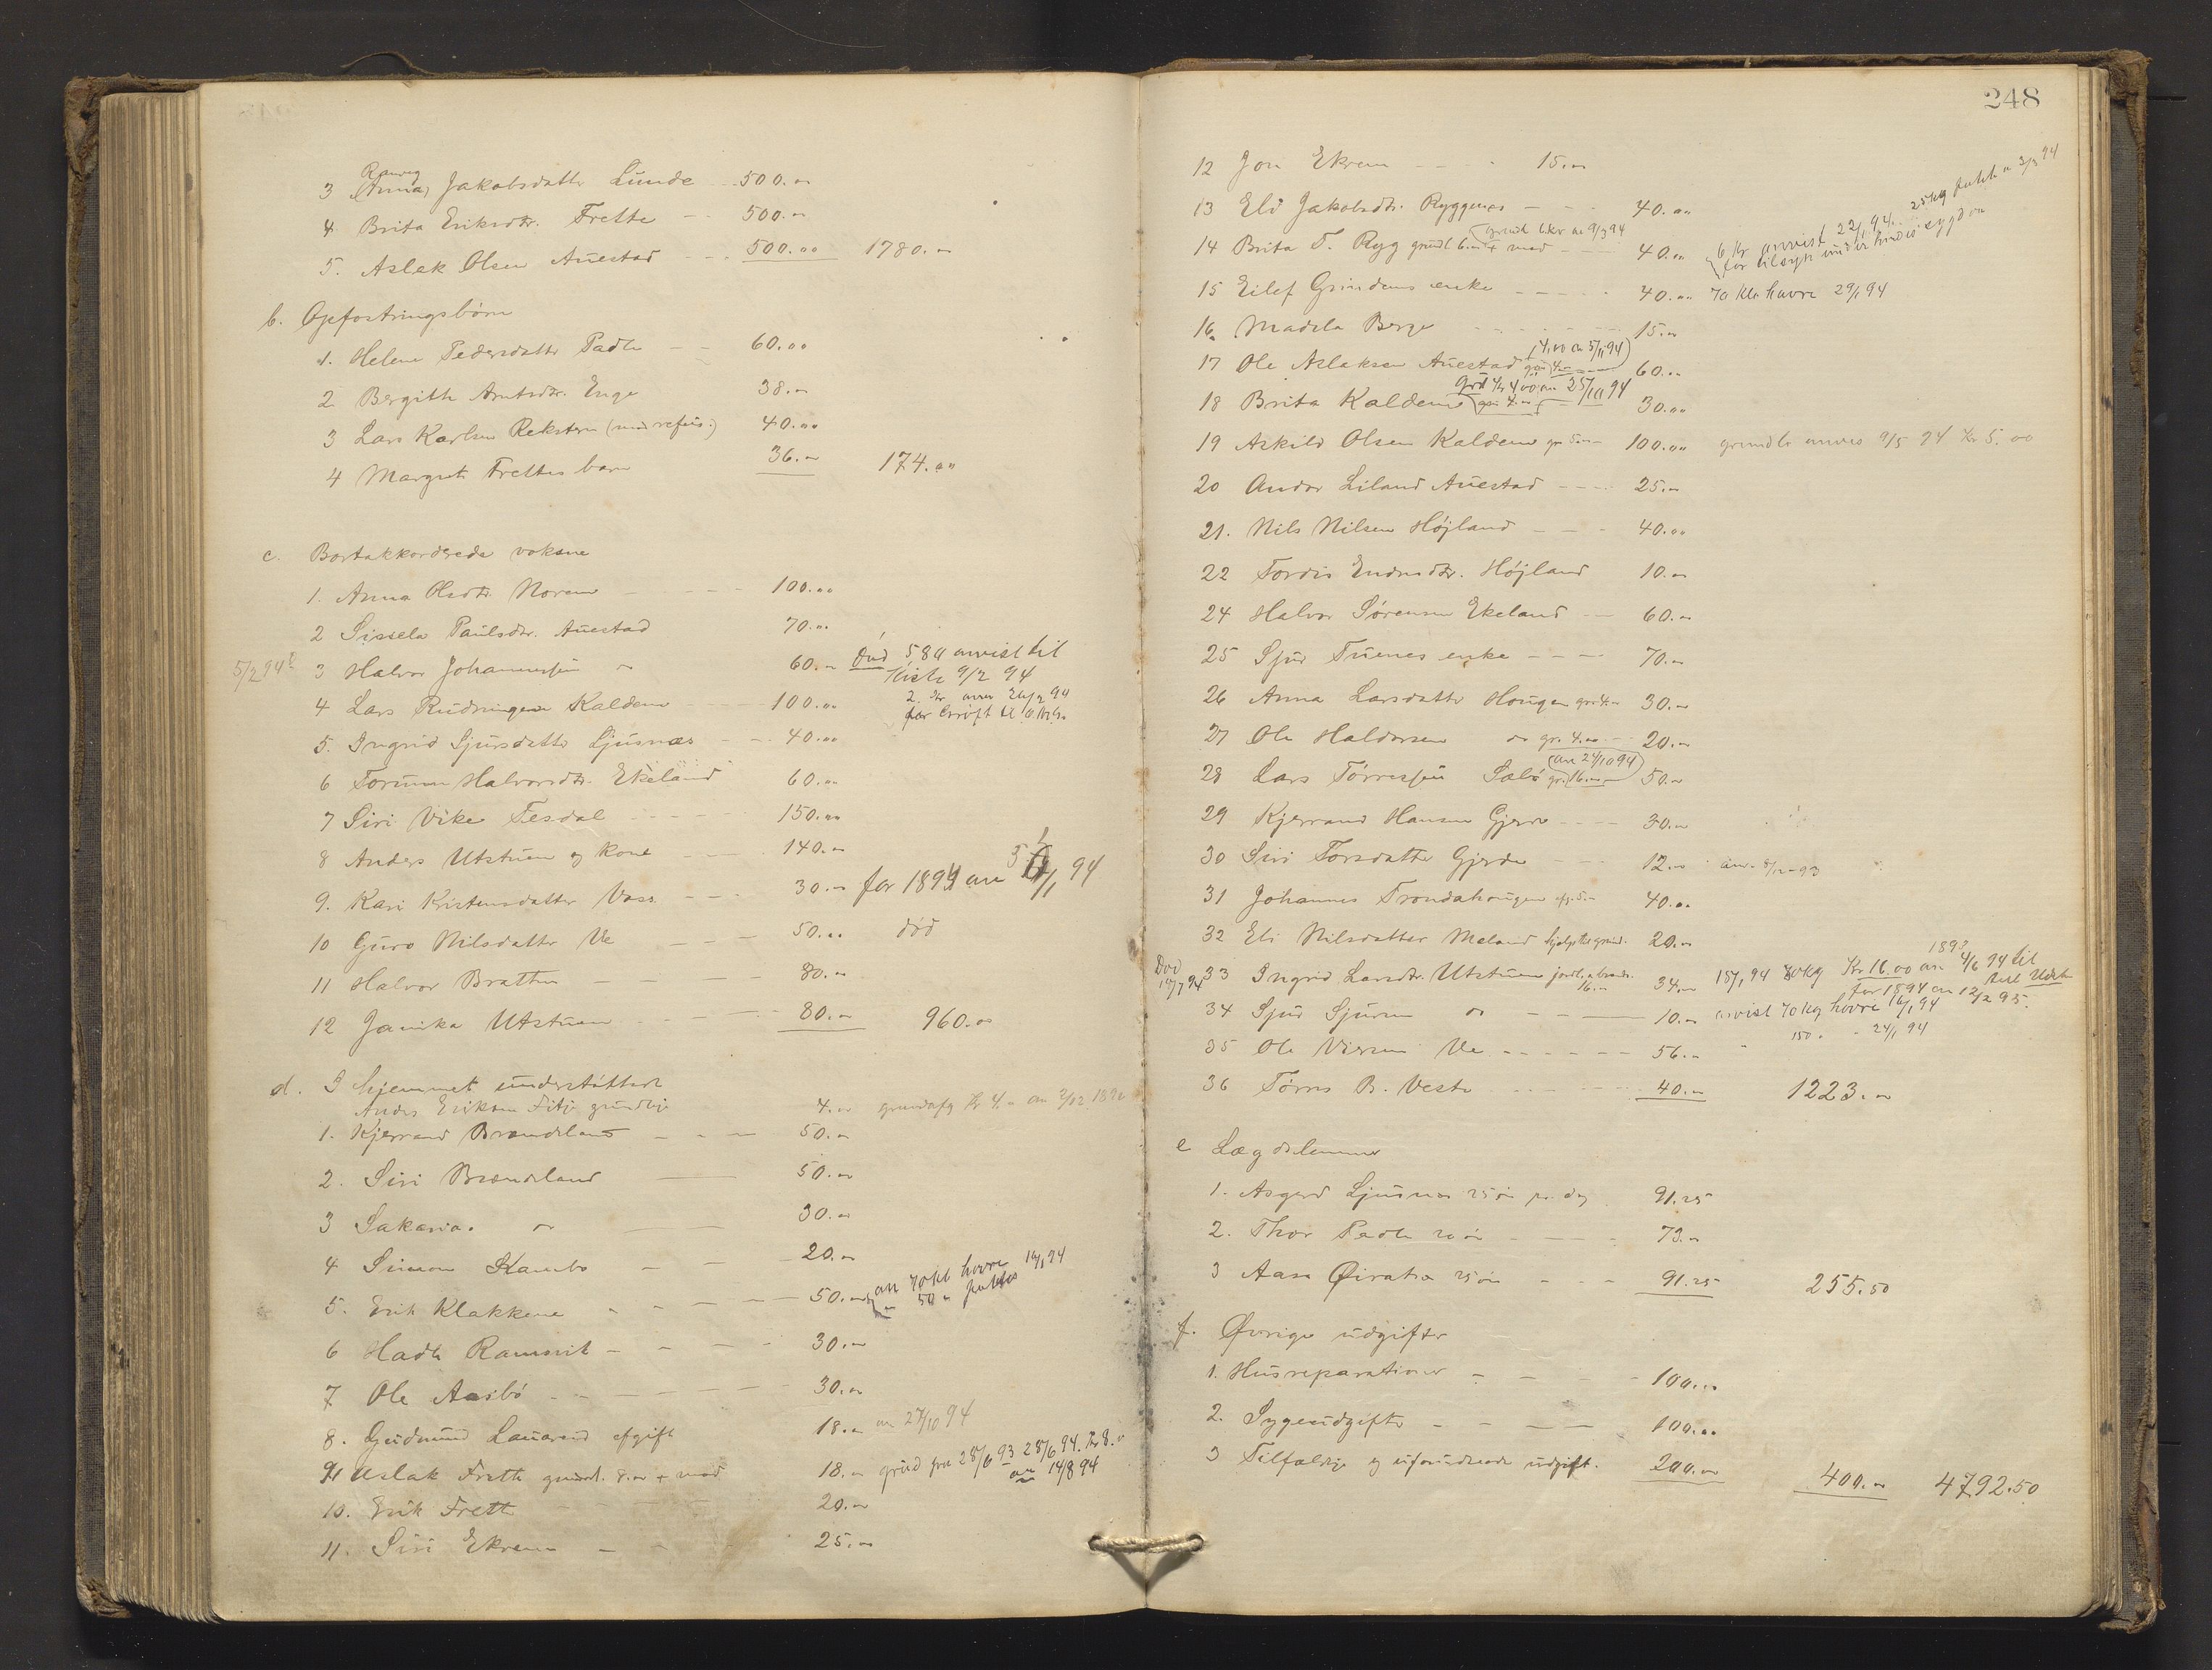 Ranveig
3 (Anna) Jakobsdatter Lunde 500.00
4 Brita Eriksdtr. Frette 500.00
5. Aslak Olsen Auestad 500.00 1780.00
b. Opfostringsbørn
1. Helene Pedersdatter Padle 60.00
2 Bergithe Arntsdtr. Enge 38.00
3 Lars Karlsen Reksten (med refus.) 40.00
4 Margrete Frettes barn 36.00 174.00
c. Bortakkorderede voksne
1. Anna Olsdtr. Norem 100.00
2 Sissela Paulsdtr. Auestad 70.00
5/2 94 3 Halvor Johannessen " 60.00 død 5.80 anvist til
kiste 9/2 94
4 Lars Rudningen Kaldem 100.00 2. kr anv 26/2 94
for
5. Ingrid Sjursdatter Ljusnæs 40.00
6 Torunn Halvorsdtr. Ekeland 60.00
7 Siri Vike Tesdal 150.00
8 Anders Utstuen og kone 140.00
9. Kari Kristensdatter Vass 30.00 for 1894 anv 5/1 94
10 Guro Nilsdatter Ve 50.00 død
11 Halvor Bratten 80.00
12 Janika Utstuen 80.00 960.00
d. I hjemmet understøttede
Anders Eriksen Fitje grundleje 4.00 grundafg Kr 4.00 an
1. Kjerrand Brændeland 50.00
2. Siri Brændeland 50.00
3 Sakarias " 30.00
4 Simon Skambo 20.00
5. Erik Klakkene 50.00 an 70 kl havre 16/1 94
" 50 " potetes
6 Hadle Ramsvik 30.00
7 Ole Aasbø 30.00
8. Gudmund Lauareid afgift 18.00 an 27/10 94
9 Aslak Frette grundl. 8.00 + mad 18.00 grud fra 28/6 93 28/6 94. Kr 8.00
an 14/8 94
10. Erik Frette 20.00
11. Siri Ekrem 25.00
248
12 Jon Ekrem 15.00
13 Eli Jakobsdtr. Ryggenes 40.00 25 kg 3/3 94
grundl 6 kr an 9/3 94
14 Brita T. Ryg grundl 6.00 + mad 40.00 6 kr anvist 22/1 94
for tilsyn under hendes sygdom
15 Eilef Grindens enke 40.00 70 klo havre 29/1 94
16 Madela Berge 15.00
4,00 an 5/11 94
17 Ole Aslaksen Auestad gru 4.00 60.00
grd Kr 4 00 an 25/10 94
18 Brita Kaldem gr. 4.00 30.00
19 Askild Olsen Kaldem gr 5.00 100.00 grundle anvis 9/5 94 Kr 5.00
20 Andor Liland Auestad 25.00
21. Nils Nilsen Højland 40.00
22 Tordis Endresdtr. Højland 10.00
24 Halvor Sørensen Ekeland 60.00
25 Sjur Tuenes enke 70.00
26 Anna Larsdatter Hougen gr 4.00 30.00
27 Ole Haldorsen " gr. 4.00 20.00
an 24/10 94
28 Lars Tørresen Sælø gr. 16.00 50.00
29 Kjerrand Hansen Gjerde 30.00
30 Siri Torsdatter Gjerde 12.00 anv 93
31 Johannes Trondahougen afg. 5.00 40.00
32 Eli Nilsdatter Meland 20.00
Død
12/7 94 33 Ingrid Larsdtr. Utstuen 16.00 34.00 15/1 94 80 kg 1893 Kr 16.00 an 4/6 94 til
for 1894 an 12/2 95.
34 Sjur Sjursen " 10.00 anvist 70 kg havre 16/1 94
35 Ole Viersen Ve 56.00 " 150 " - 24/1 94
36 Tørres B. Veste 40.00 1223.00
e Lægdslemmer
1. Asgerd Ljusnes 25 øre pr. dag 91.25
2. Thor Padle 20 øre 73.00
3 Aasa Øiratræ 25 øre 91.25 255.50
f. Øvrige udgifter
1. Husreparationer 100.00
2. Sygeudgifter 100.00
3 Tilfældige og uforudseede udgift. 200.00 400.00 4792.50